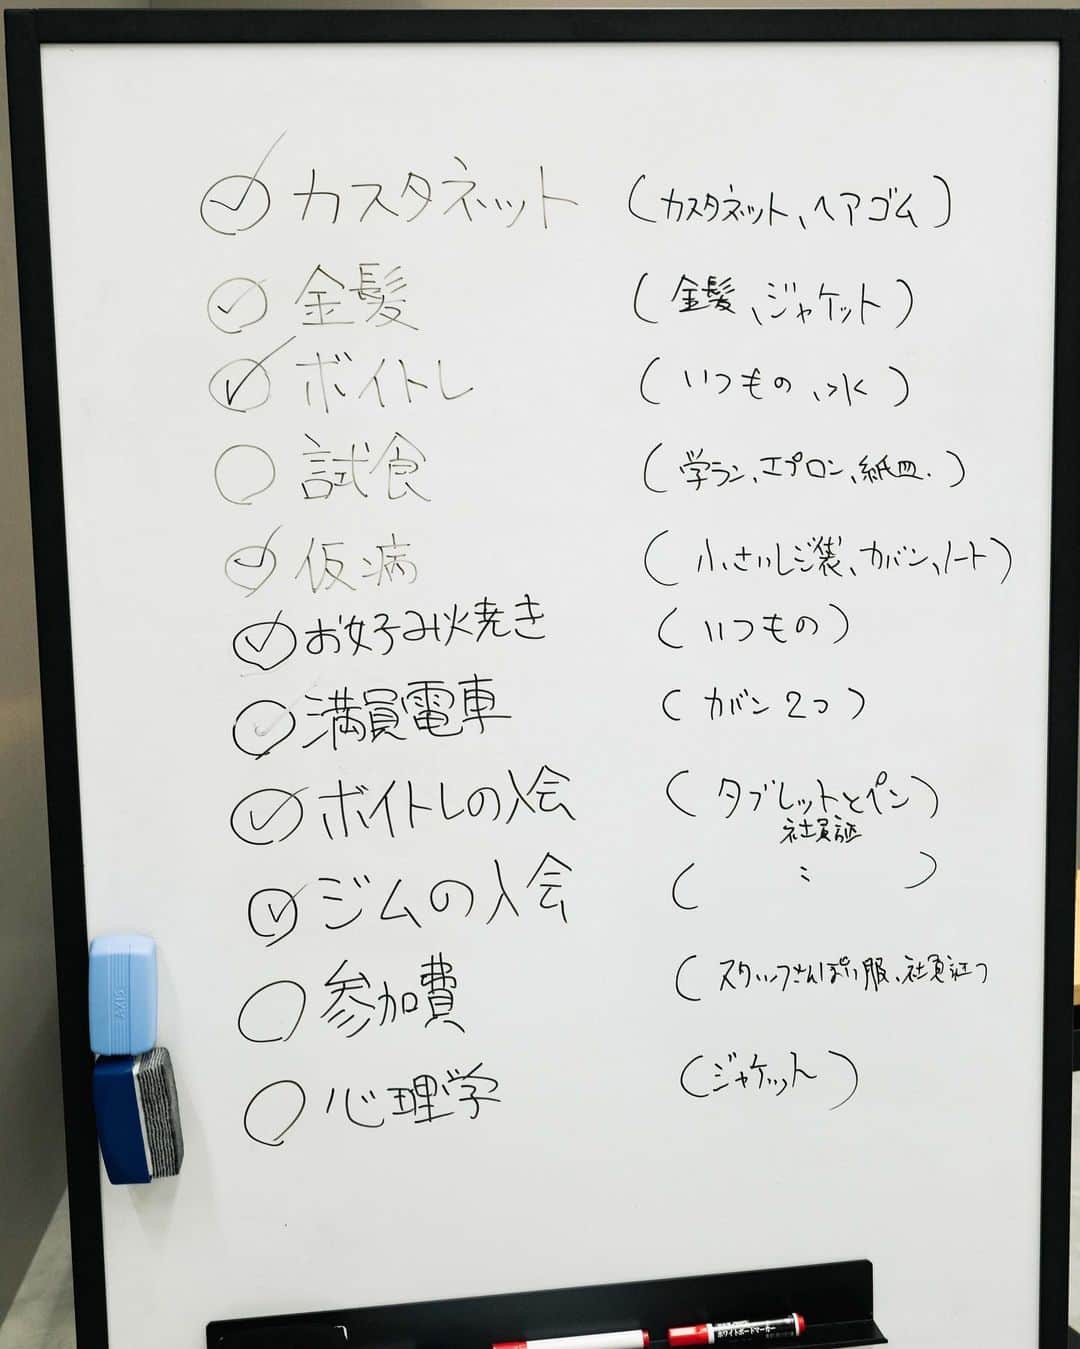 カスタネット (カスタネット、ヘアゴム)
金髪 (金髪、ジャケット)
ボイトレ (いつもの、水)
試食 (学ラン、エプロン、紙皿.)
仮病 (小さいレジ袋、カバン、ノート)
お好み焼き (いつもの)
満員電車 (カバン2つ)
ボイトレの入会 (タブレットとペン)
社員証
ジムの入会 (〃)
参加費 (スタッフさんぽい服、社員証)
心理学 (ジャケット)
AXIS
ホワイトボードマーカー